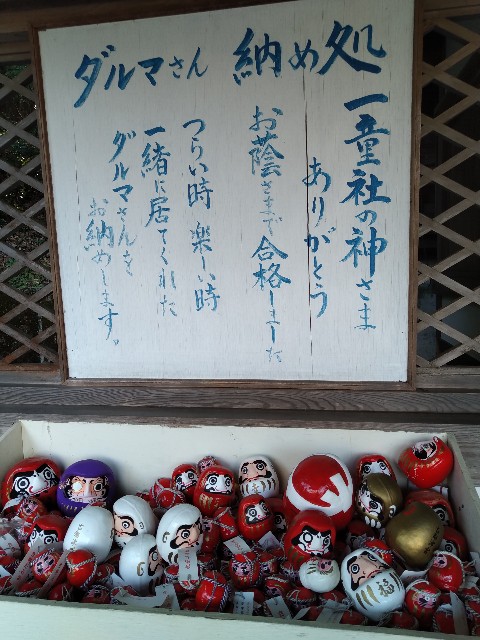 ダルマさん 納め処
一童社の神さま
ありがとう
お蔭さまで合格しました
つらい時 楽しい時
一緒に居てくれた
ダルマさんを
お納めします。
福